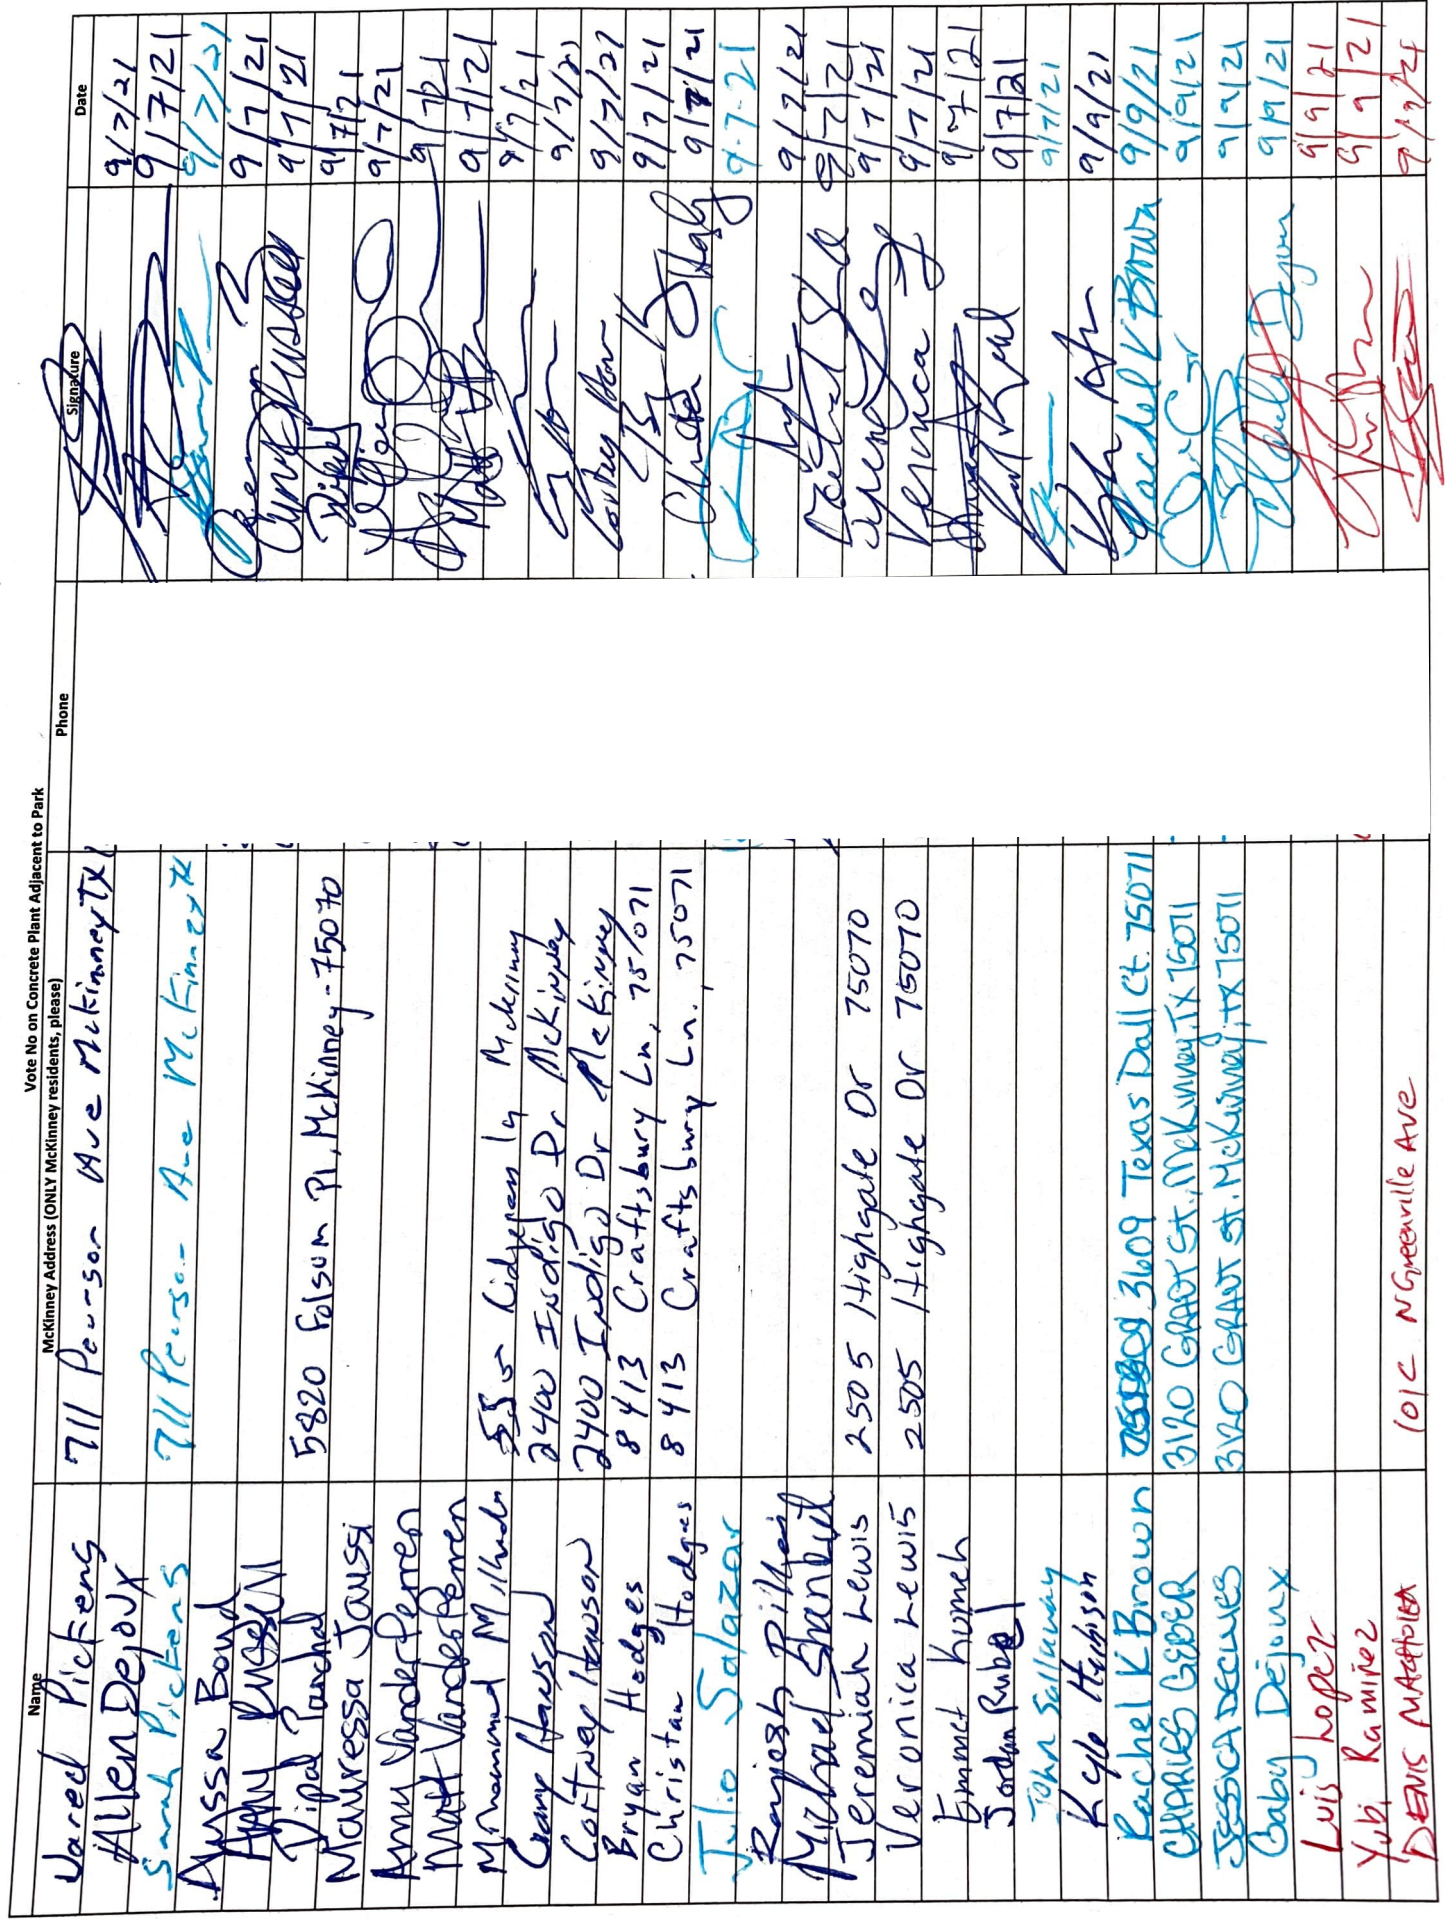 Vote No on Concrete Plant Adjacent to Park
Name McKinney Address (ONLY McKinney residents, please) Phone Signature Date
Jared Pickens 711 Pearson Ave McKinney TX 9/7/21
Allen Dejoux 9/7/21
Sarah Pickens 711 Pearson Ave McKinney TX 9/7/21
Alyssa Boyd 9/7/21
Amy Russell 9/7/21
Dipal Panchal 5820 Folsom Pl, McKinney - 75070 Dipal 9/7/21
Mauressa Jaussi 9/7/21
Amy VanderPerren 9/7/21
Matt VanderPerren 9/7/21
Mohammad Ridgepass ln McKinney 9/7/21
Hawson 2400 Indigo Dr McKinney 9/7/21
Cortney Hawson 2400 Indigo Dr McKinney 9/7/21
Bryan Hodges 8413 Craftsbury Ln, 75071 9/7/21
Christan Hodges 8413 Craftsbury Ln., 75071 9/7/21
Julio Salazar 9-7-21
Rajesh Pillai 9/7/21
Michael Shankil 9/7/21
Jeremiah Lewis 2505 Highgate Dr 75070 9/7/21
Veronica Lewis 2505 Highgate Dr 75070 Veronica 9/7/21
Emmet Kumeh 9/7/21
Jordan Rubel 9/7/21
John Sallaway 9/7/21
Kyle Henison 9/9/21
Rachel K Brown 3609 Texas Dall Ct. 75071 Rachel K Brown 9/9/21
CHARLES GEBER 3120 GRANT St., McKinney, TX 75071 9/9/21
JESSICA DECLUES 3120 GRANT St. McKinney, TX 75071 9/9/21
Gaby Dejoux 9/9/21
Luis Lopez 9/9/21
Yubi Ramirez 9/9/21
DENIS 101C N Greenville Ave